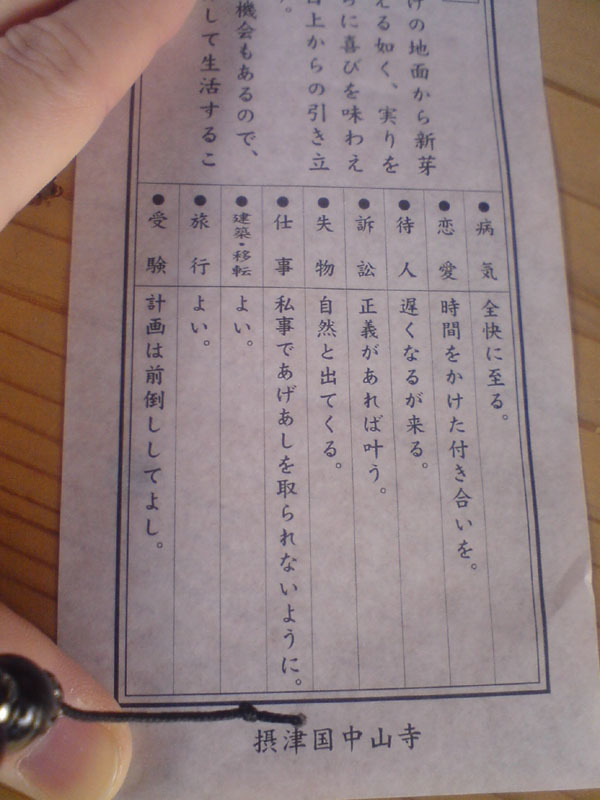 けの地面から新芽
える如く、実りを
らに喜びを味わえ
上からの引き立
。
機会もあるので、
して生活するこ
●病気 全快に至る。
●恋愛 時間をかけた付き合いを。
●待人 遅くなるが来る。
●訴訟 正義があれば叶う。
●失物 自然と出てくる。
●仕事 私事であげあしを取られないように。
●建築・移転 よい。
●旅行 よい。
●受験 計画は前倒ししてよし。
摂津国中山寺